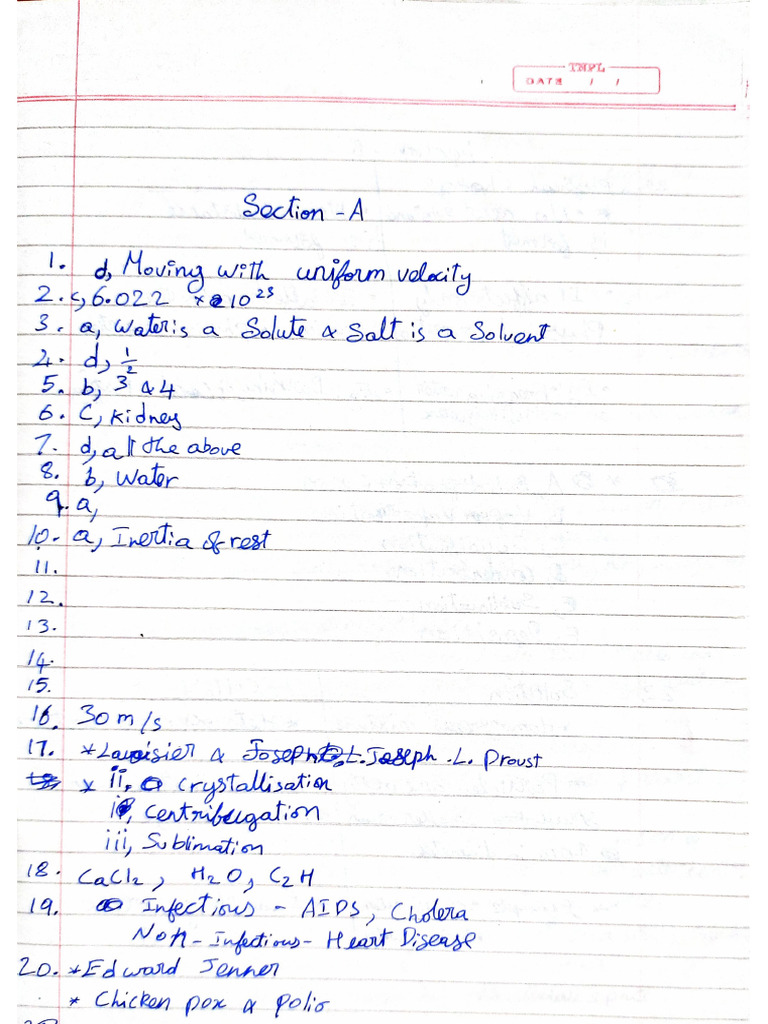 TNPL
DATE / /
Section - A
1. d, Moving with uniform velocity
2. c, 6.022 × 10²³
3. a, Water is a Solute & Salt is a Solvent
4. d, 1/2
5. b, 3 & 4
6. C, kidney
7. d, all the above
8. b, Water
9. a,
10. a, Inertia of rest
11.
12.
13.
14.
15.
16. 30 m/s
17. * Lavoisier & Joseph . L. Proust
* ii, crystallisation
i, Centrifugation
iii, Sublimation
18. CaCl2, H2O, C2H
19. Infectious - AIDS, Cholera
Non - Infectious - Heart Disease
20. * Edward Jenner
* Chicken pox & polio